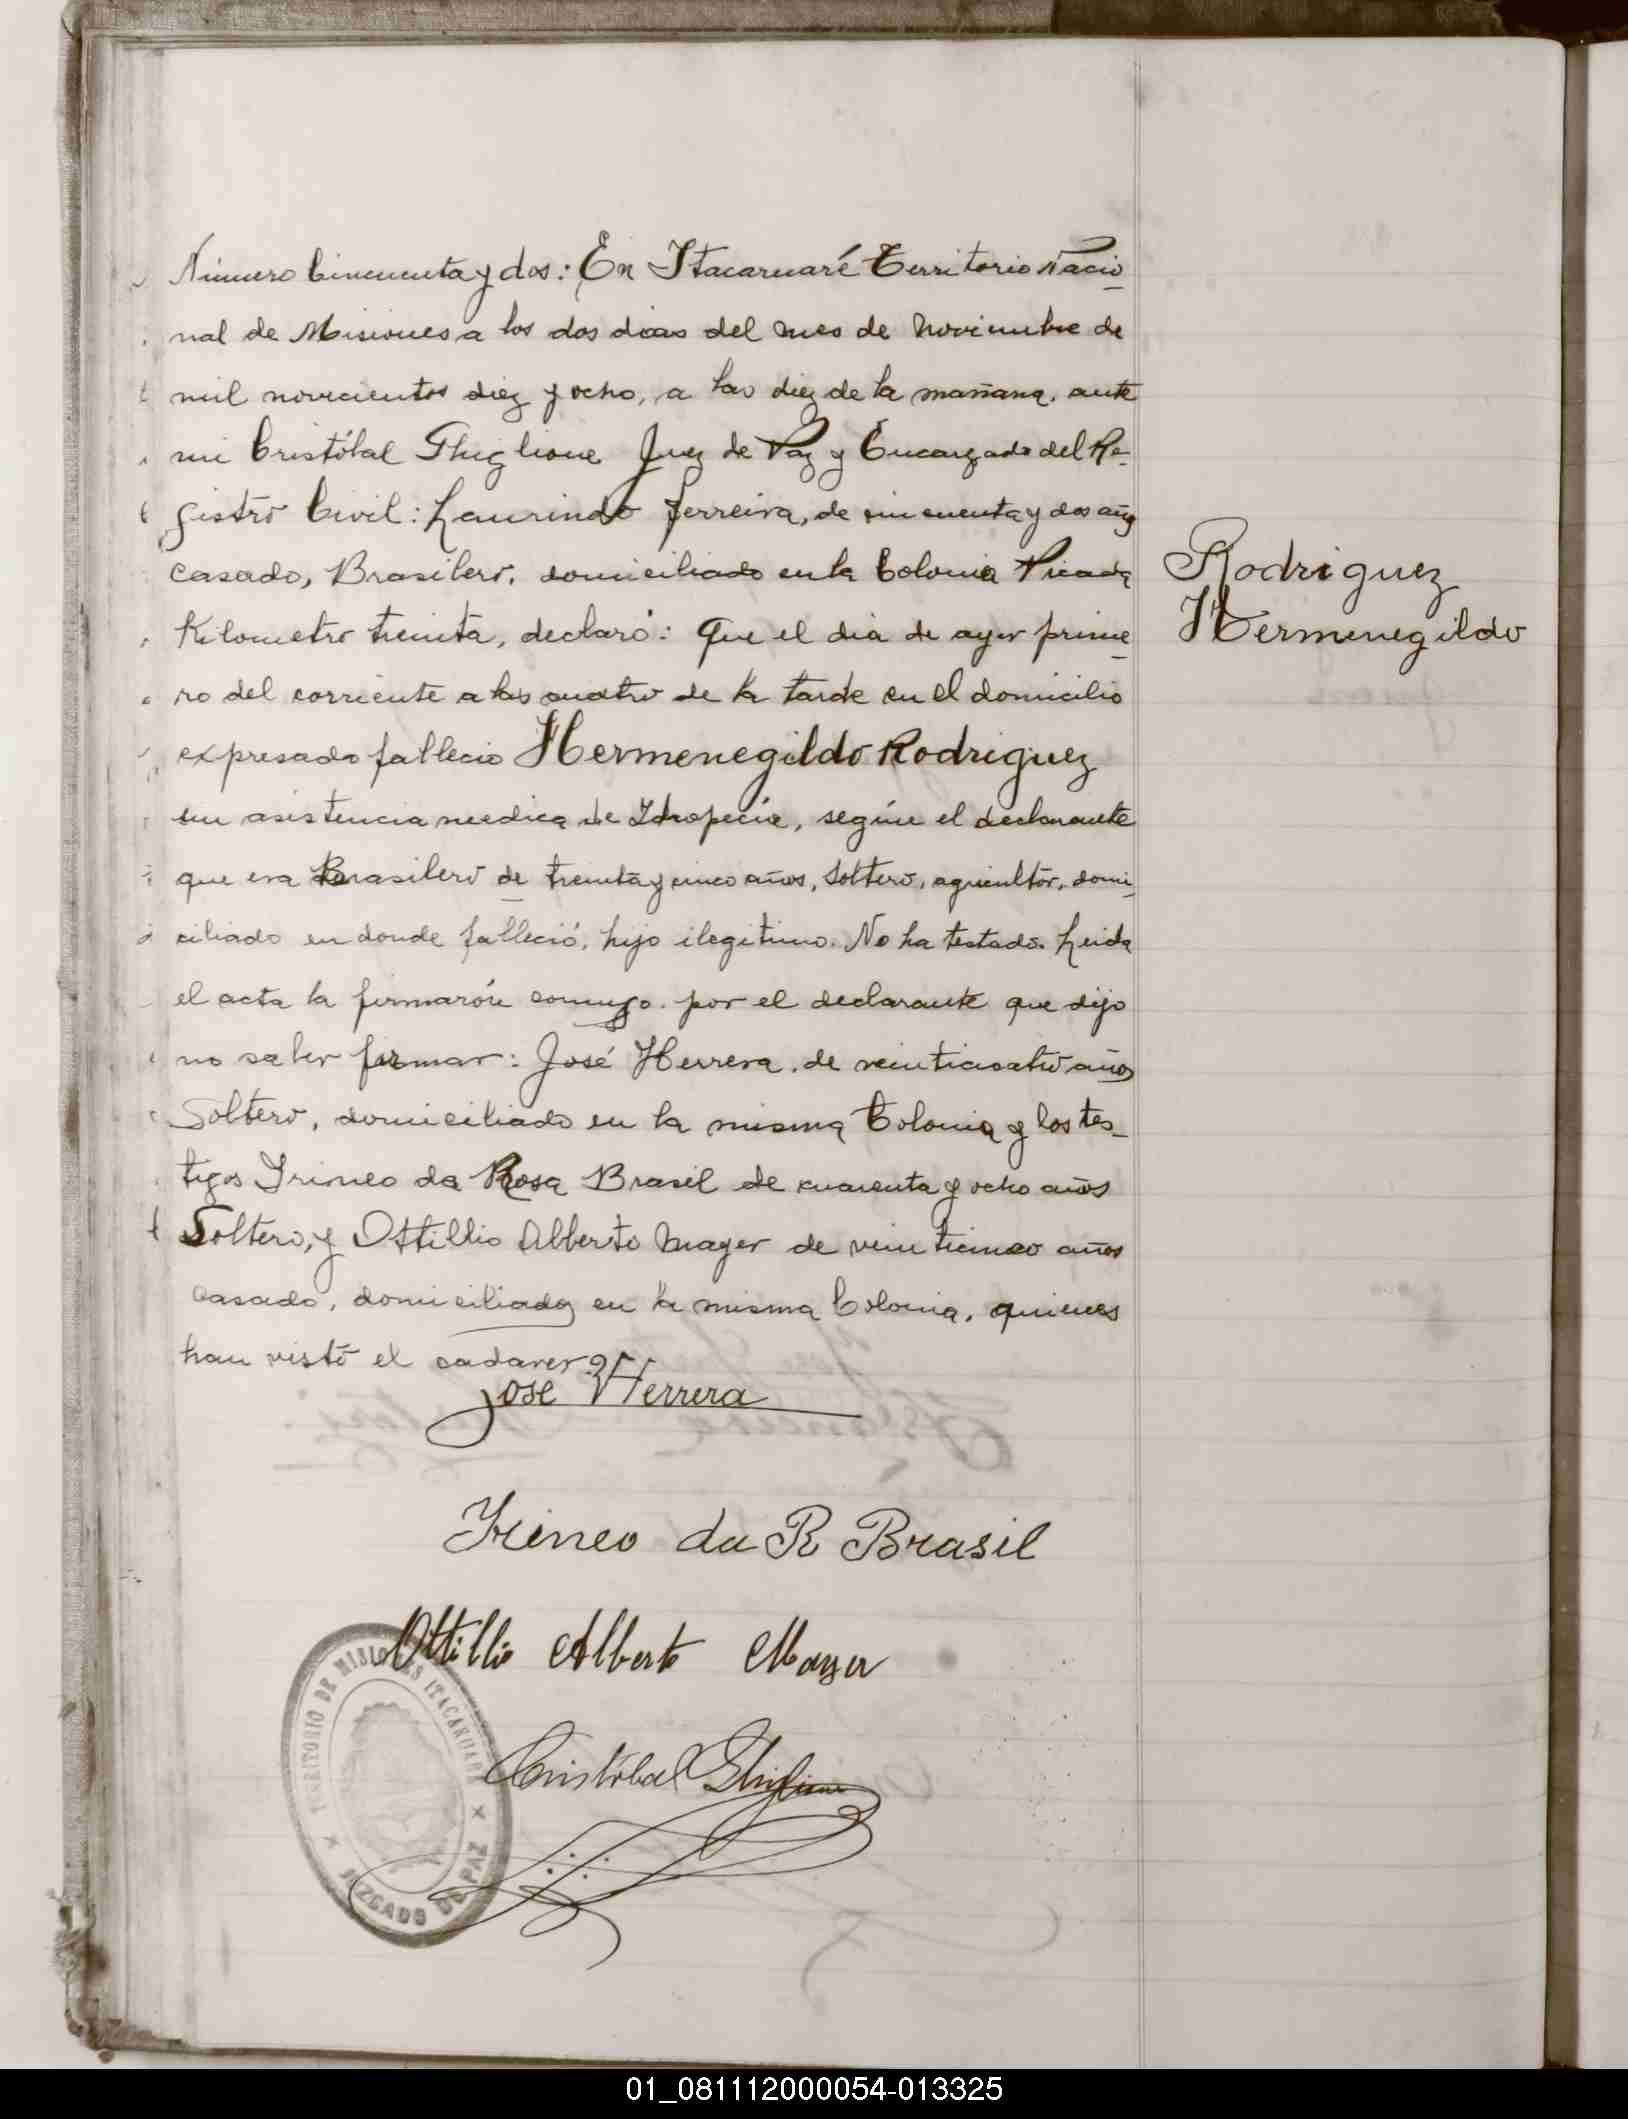 Número Cincuenta y dos: En Itacaruaré Territorio Nacio-
nal de Misiones a los dos dias del mes de Noviembre de
mil novecientos diez y ocho, a las diez de la mañana, ante
mi Cristóbal Ghiglione Juez de Paz y Encargado del Re-
gistro Civil: Laurindo Ferreira, de cincuenta y dos años
casado, Brasilero, domiciliado en la Colonia Picada
Kilometro treinta, declaró: Que el dia de ayer prime-
ro del corriente a las cuatro de la tarde en el domicilio
expresado fallecio Hermenegildo Rodriguez
sin asistencia medica de Idropecia, según el declarante
que era Brasilero de treinta y cinco años, Soltero, agricultor, domi-
ciliado en donde falleció, hijo ilegitimo. No ha testado. Leida
el acta la firmarón conmigo. por el declarante que dijo
no saber firmar: José Herrera, de veinticuatro años
Soltero, domiciliado en la misma Colonia y los tes-
tigos Irineo da Rosa Brasil de cuarenta y ocho años
Soltero, y Ottillio Alberto Mayer de veinticinco años
casado, domiciliados en la misma Colonia, quienes
han visto el cadaver
Rodriguez
Hermenegildo
José Herrera
Irineo da R Brasil
Ottillio Alberto Mayer
Cristóbal Ghiglione
TERRITORIO DE MISIONES ITACARUARE
JUZGADO DE PAZ
01_081112000054-013325